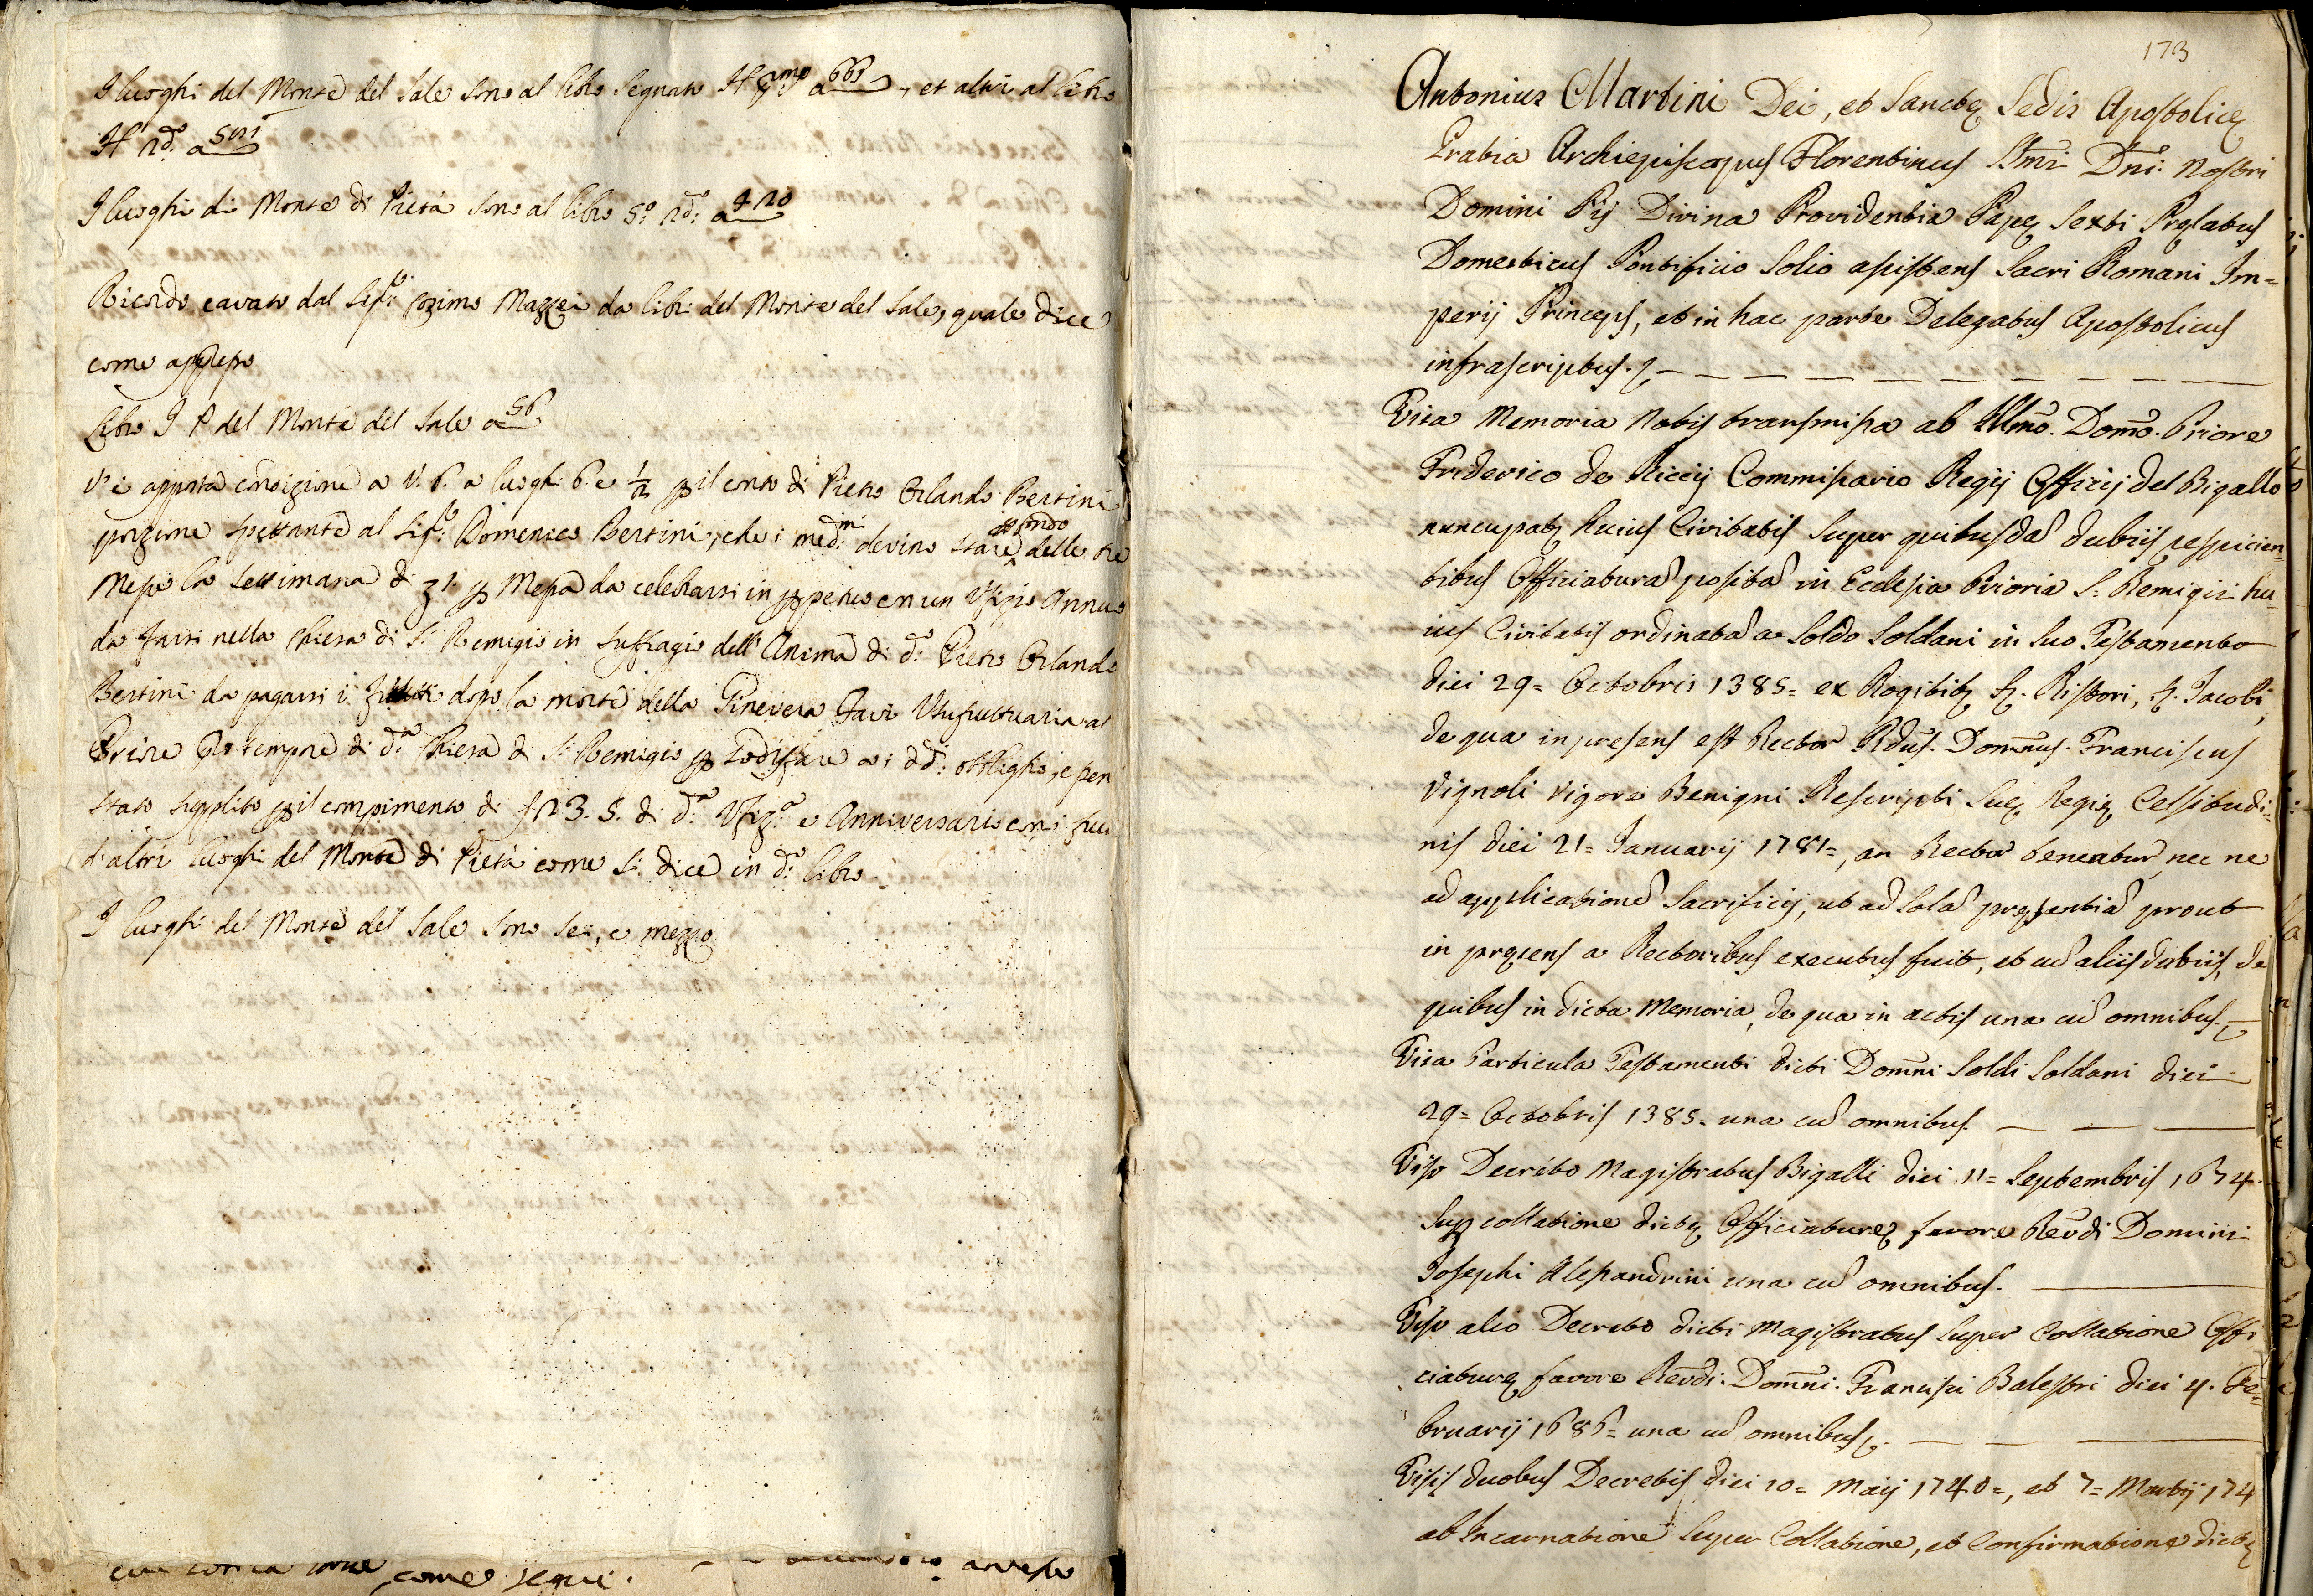 I luoghi del Monte del Sale sono al libro segnato H pmo a 661, et altri al libro
H 2do: a 501
I luoghi di Monte di Pietà sono al libro 5o: 2do: a 420
Ricordo cavato dal Sigr: Cosimo Mazzei da libri del Monte del Sale, quale dice
come appresso
Libro I P del Monte del Sale a 56
V'è apposta condizione a V. 6. a luoghi 6. e ½ p il conto di Pietro Orlando Bertini
porzione spettante al Sigr: Domenico Bertini, che i medmi: devino stare p fondo delle tre
Messe la settimana di
p Messa da celebrarsi in ppetuo con un Ufizio Annuo
da farsi nella Chiesa di S: Remigio in suffragio dell'Anima di do: Pietro Orlando
Bertini da pagarsi i frutti dopo la morte della Ginevera Favi Usufruttuaria al
Priore Pro tempore di da: Chiesa di S: Remigio p sodisfare a i dd: obblighi, e per
stato supplito p il compimento di 23. 5. di do: Ufizo: e Anniversario con i fru
d'altri luoghi del Monte di Pietà come si dice in do: libro.
I luoghi del Monte del Sale sono sei, e mezzo
come segue.
173
Antonius Martini Dei, et Sanctę Sedis Apostolicę
Gratia Archiepiscopus Florentinus SSmi Dni: Nostri
Domini Pij Divina Providentia Papę Sexti Pręlatus
Domesticus Pontificio Solio assistens Sacri Romani Im=
perij Princeps, et in hac parte Delegatus Apostolicus
infrascriptus.
Visa Memoria Nobis transmissa ab Illmo. Domo. Priore
Friderico de Riccij Commissario Regij Officij del Bigallo
nuncupatę huius Civitatis super quibusdã dubiis respicien=
tibus Officiaturã positã in Ecclesia Prioria S. Remigii hu=
ius Civitatis ordinatã a Soldo Soldani in suo Testamento
diei 29= Octobris 1385= ex Rogitibę S. Ristori, S. Jacobi,
de qua in presens est Rector Rdus. Domnus. Franciscus
Vignoli vigore Benigni Rescripti Suę Regię Celsitudi=
nis diei 21= Januarij 1781=, an Rector teneatur, nec ne
ad applicationẽ Sacrificij, ut ad solã pręsentiã prout
in pręsens a Rectoribus executus fuit, et cũ aliis dubiis, de
quibus in dicta Memoria, de qua in actis una cũ omnibus.
Visa Particula Testamenti dicti Domni Soldi Soldani diei
29= Octobris 1385= una cũ omnibus
Viso Decreto Magistratus Bigalli diei 11= Septembris 1674.
Sup collatione dictę Officiaturę favore Revdi Domini
Josephi Alessandrini una cũ omnibus.
Viso alio Decreto dicti Magistratus super Collatione Offi
ciaturę favore Revdi: Domni: Francisci Balestri diei 4. Fe=
bruarij 1686= una cũ omnibus.
Visis duobus Decretis diei 10= Maij 1740=, et 7= Martij 174
ab Incarnatione super Collatione, et Confirmatione dictę